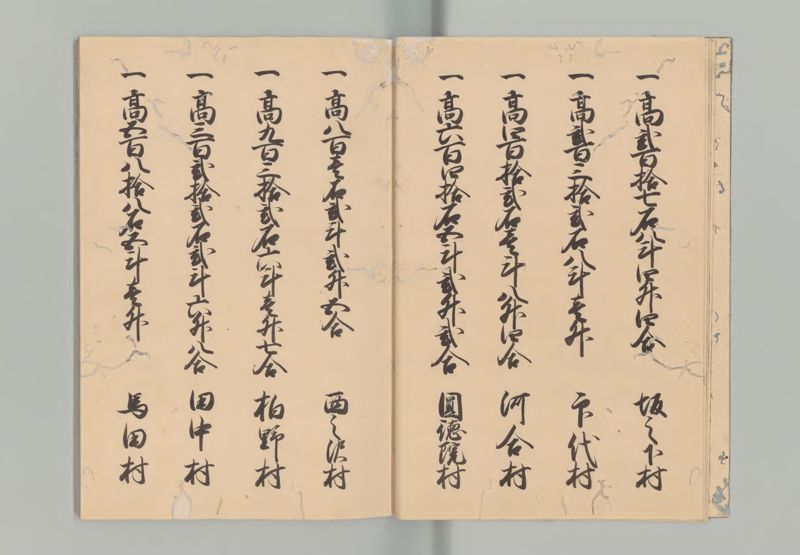 一高貳百拾七石八斗四升四合 坂之下村
一高貳百三拾貳石八斗壱升 市代村
一高四百拾貳石壱斗八升四合 河合村
一高六百四拾石五斗貳升貳合 圓徳院村
一高八百壱石貳斗貳升五合 西之沢村
一高九百三拾貳石六斗壱升七合 柏野村
一高三百貳拾貳石貳斗六升八合 田中村
一高五百八拾八石五斗壱升 馬田村